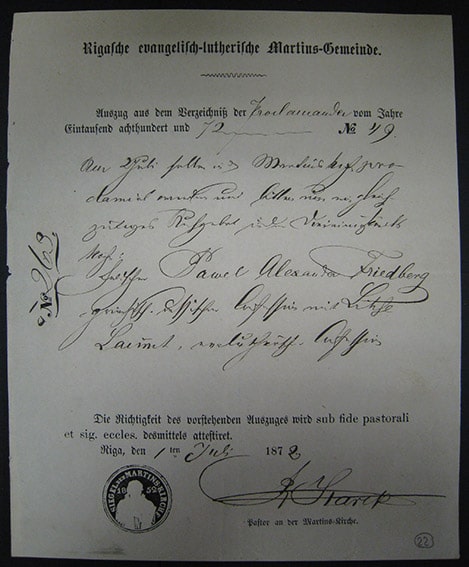 Rigasche evangelisch-lutherische Martins-Gemeinde.
Auszug aus dem Verzeichniß der Proclamanden vom Jahre
Eintausend achthundert und 72 № 49.
Am 2 Juli sollen in d Martinskirche pro
clamiert werden und bitten um
in der
№ 263
zwischen Pawel Alexander Friedberg
griechisch-russischer Confession mit Lihse
Laemet, ev. lutherisch. Confession
Die Richtigkeit des vorstehenden Auszuges wird sub fide pastorali
et sig. eccles. desmittels attestiret.
Riga, den 1ten Juli 1872
SIEGEL DER MARTINS-KIRCHE
1852
Starck
Pastor an der Martins-Kirche.
22